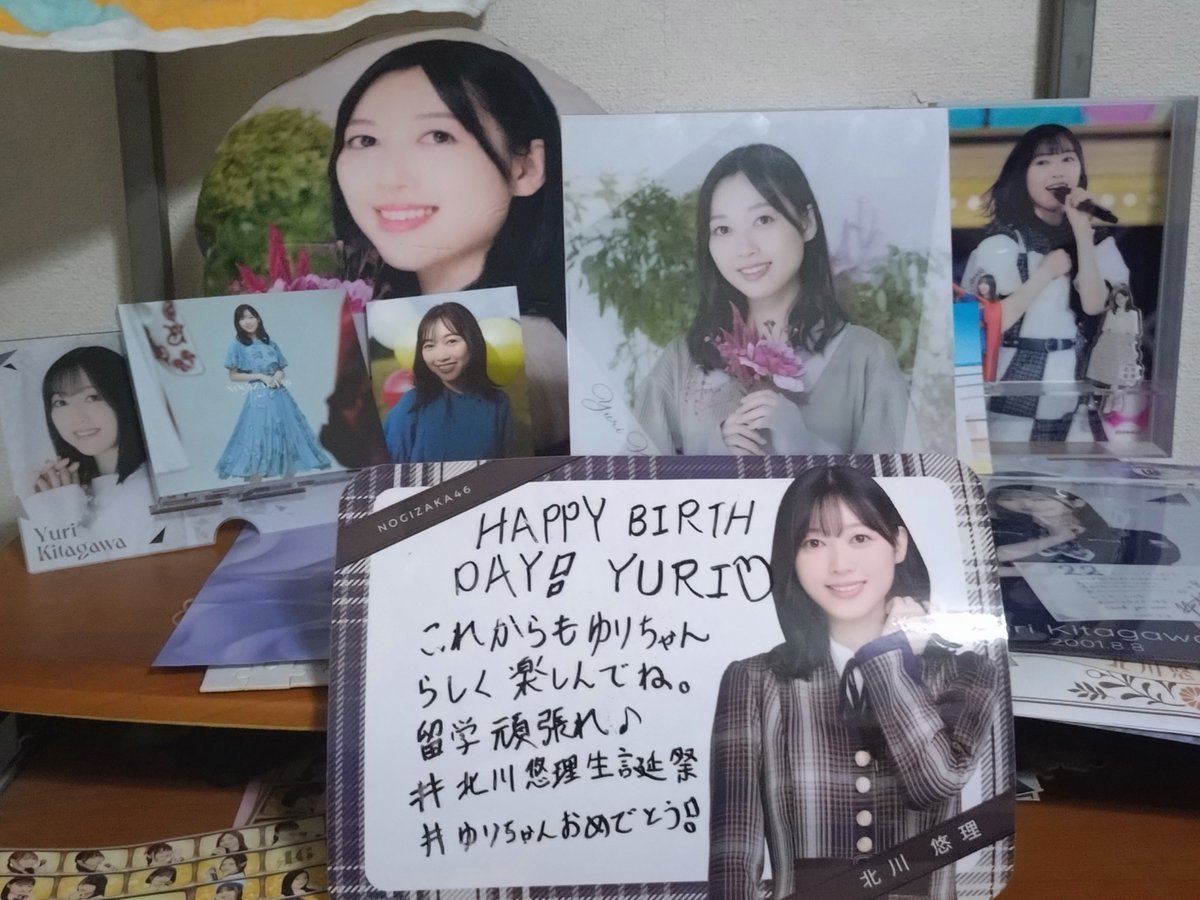 NOGIZAKA46
Yuri
Yuri
Kitagawa
NOGIZAKA46
HAPPY BIRTH
DAY!! YURI♡
これからもゆりちゃん
らしく楽しんでね。
留学頑張れ♪
#北川悠理生誕祭
#ゆりちゃんおめでとう!!
北川 悠理
22
Kitagawa
2001.8.8
北川悠
46